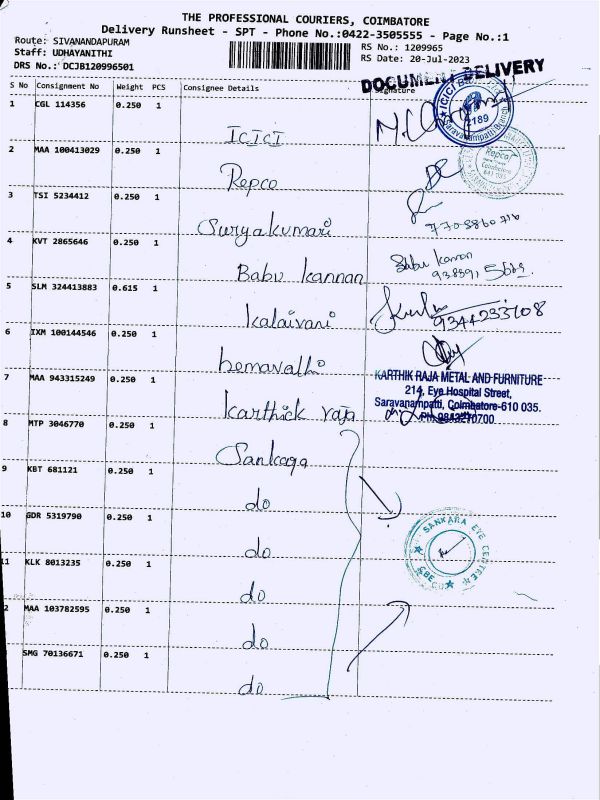 THE PROFESSIONAL COURIERS, COIMBATORE
Delivery Runsheet - SPT - Phone No.:0422-3505555 - Page No.:1
Route: SIVANANDAPURAM
RS No.: 1209965
Staff: UDHAYANITHI
RS Date: 20-Jul-2023
DRS No.: DCJB120996501
DOCUMENT DELIVERY
S No Consignment No Weight PCS Consignee Details Signature
1 CGL 114356 0.250 1
ICICI
ICICI
2189
Saravanampatti Branch
2 MAA 100413029 0.250 1
Repco
Repco
Coimbatore
3 TSI 5234412 0.250 1
Suryakumari
4 KVT 2865646 0.250 1
Babu Kannan
Babu Kannan
5 SLM 324413883 0.615 1
Kalaivani
9344233708
6 IXM 100144546 0.250 1
hemavathi
7 MAA 943315249 0.250 1
Karthick raja
KARTHIK RAJA METAL AND FURNITURE
214, Eye Hospital Street,
Saravanampatti, Coimbatore-610 035.
8 MTP 3046770 0.250 1
Sankara
9 KBT 681121 0.250 1
do
10 GDR 5319790 0.250 1
do
SANKARA EYE CENTRE
11 KLK 8013235 0.250 1
do
2 MAA 103782595 0.250 1
do
SMG 70136671 0.250 1
do